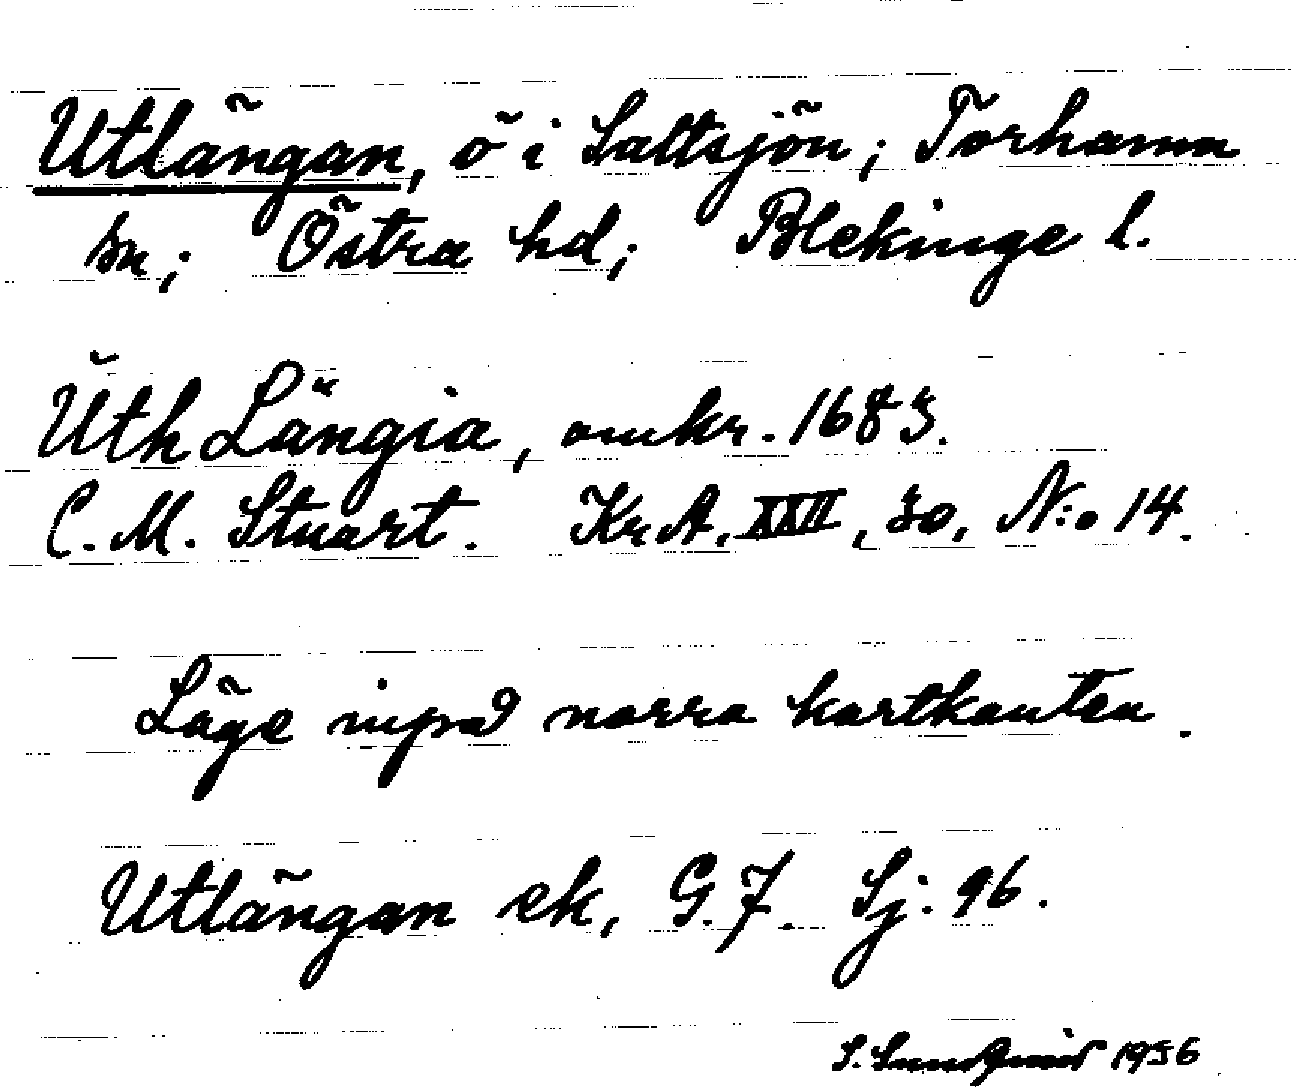 Utlängan, ö i Saltsjön; Torhamn
sn; Östra hd; Blekinge l.
Ŭth Längia, omkr. 1683.
C. M. Stuart. Kr. A. XXII, 30, N:o 14.
Läge inpå norra kartkanten.
Utlängan ek, G. 7. Sj: 96.
S. 1956